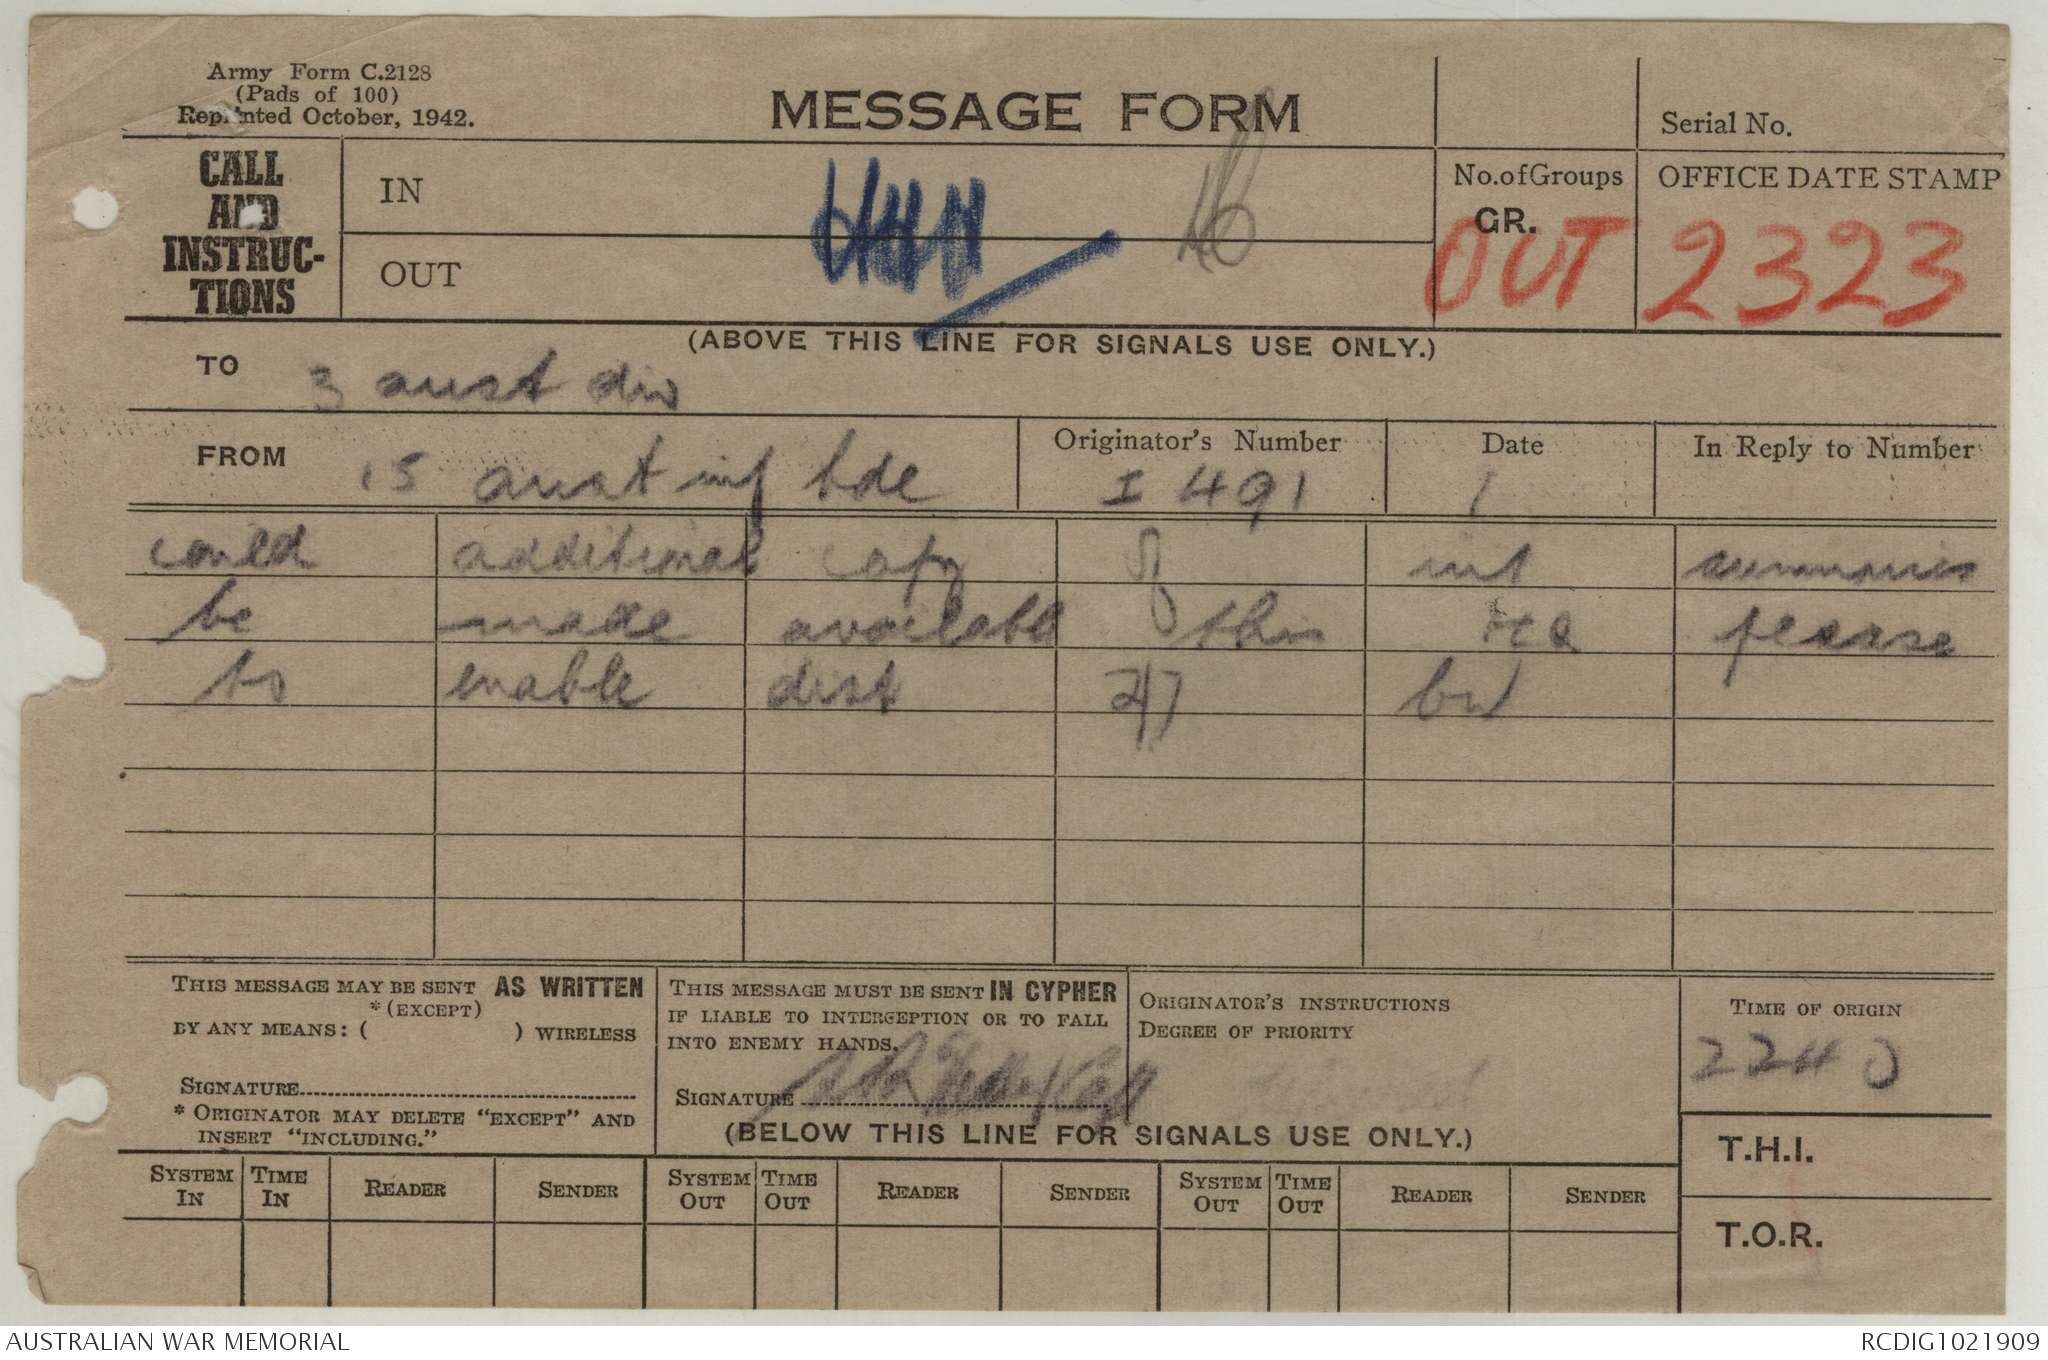 Army Form C.2128
(Pads of 100)
Reprinted October, 1942.
MESSAGE FORM
Serial No.
CALL
AND
INSTRUC-
TIONS
IN
OUT
No. of Groups
GR.
OFFICE DATE STAMP
OUT 2323
(ABOVE THIS LINE FOR SIGNALS USE ONLY.)
TO 3 aust div
FROM 15 aust inf bde
Originator's Number
I 491
Date
1
In Reply to Number
could additional copy of int summaries
be made available this HQ please
to enable dist 2/7 bn
THIS MESSAGE MAY BE SENT AS WRITTEN
*(EXCEPT)
BY ANY MEANS: ( ) WIRELESS
SIGNATURE
* ORIGINATOR MAY DELETE "EXCEPT" AND
INSERT "INCLUDING."
THIS MESSAGE MUST BE SENT IN CYPHER
IF LIABLE TO INTERCEPTION OR TO FALL
INTO ENEMY HANDS.
SIGNATURE
ORIGINATOR'S INSTRUCTIONS
DEGREE OF PRIORITY
TIME OF ORIGIN
2240
(BELOW THIS LINE FOR SIGNALS USE ONLY.)
T.H.I.
T.O.R.
SYSTEM IN TIME IN READER SENDER SYSTEM OUT TIME OUT READER SENDER SYSTEM OUT TIME OUT READER SENDER
AUSTRALIAN WAR MEMORIAL
RCDIG1021909